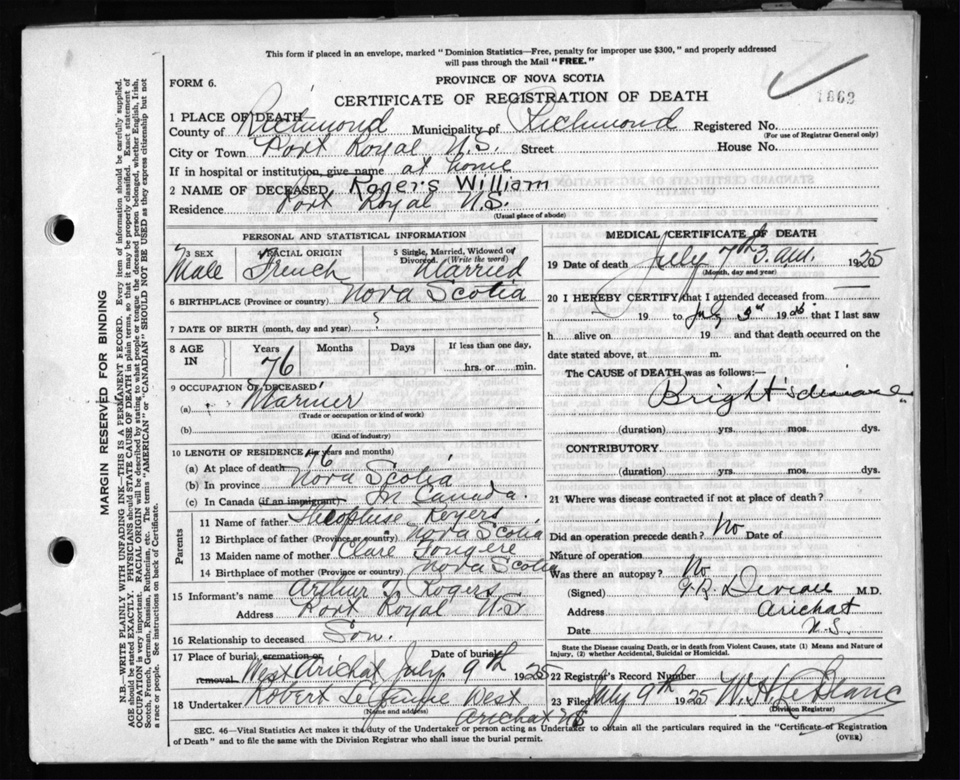 This form if placed in an envelope, marked "Dominion Statistics—Free, penalty for improper use $300," and properly addressed
will pass through the Mail "FREE."
FORM 6.
PROVINCE OF NOVA SCOTIA
1862
CERTIFICATE OF REGISTRATION OF DEATH
1 PLACE OF DEATH
County of Richmond Municipality of Richmond Registered No.
(For use of Registrar General only)
City or Town Port Royal N.S. Street House No.
If in hospital or institution, give name at home
2 NAME OF DECEASED Rogers William
Residence Port Royal N.S.
(Usual place of abode)
PERSONAL AND STATISTICAL INFORMATION
3 SEX Male
4 RACIAL ORIGIN French
5 Single, Married, Widowed or Divorced (Write the word) Married
6 BIRTHPLACE (Province or country) Nova Scotia
7 DATE OF BIRTH (month, day and year) ?
8 AGE IN Years 76 Months Days If less than one day, hrs. or min.
9 OCCUPATION OF DECEASED
(a) Mariner
(Trade or occupation or kind of work)
(b)
(Kind of industry)
10 LENGTH OF RESIDENCE (in years and months)
(a) At place of death 76
(b) In province Nova Scotia
(c) In Canada (if an immigrant) In Canada.
Parents
11 Name of father Rogers
12 Birthplace of father (Province or country) Nova Scotia
13 Maiden name of mother Clare Fougere
14 Birthplace of mother (Province or country) Nova Scotia
15 Informant's name Arthur Rogers
Address Port Royal N.S
16 Relationship to deceased Son.
17 Place of burial, cremation or removal West Arichat Date of burial July 9th 1925
18 Undertaker Robert West
(Name and address)
Arichat N.S
MEDICAL CERTIFICATE OF DEATH
19 Date of death July 7th 3. a.m. 1925
(Month, day and year)
20 I HEREBY CERTIFY that I attended deceased from
19 to 19 that I last saw
h alive on 19 and that death occurred on the
date stated above, at m.
The CAUSE of DEATH was as follows:—
Bright's disease
(duration) yrs. mos. dys.
CONTRIBUTORY
(duration) yrs. mos. dys.
21 Where was disease contracted if not at place of death?
Did an operation precede death? No Date of
Nature of operation
Was there an autopsy? No
(Signed) M.D.
Address Arichat
N.S.
Date
State the Disease causing Death, or in Death from Violent Causes, state (1) Means and Nature of Injury, (2) whether Accidental, Suicidal or Homicidal.
22 Registrar's Record Number
23 Filed July 9th 1925 W. H. LeBlanc
(Division Registrar)
SEC. 46—Vital Statistics Act makes it the duty of the Undertaker or person acting as Undertaker to obtain all the particulars required in the "Certificate of Registration
of Death" and to file the same with the Division Registrar who shall issue the burial permit.
(OVER)
MARGIN RESERVED FOR BINDING
N.B.—WRITE PLAINLY WITH UNFADING INK—THIS IS A PERMANENT RECORD. Every item of information should be carefully supplied.
AGE should be stated EXACTLY. PHYSICIANS should STATE CAUSE OF DEATH in plain terms, so that it may be properly classified. Exact statement of
OCCUPATION is very important. RACIAL ORIGIN will be described by stating to what people or tongue the deceased person belonged, whether English, Irish,
Scotch, French, German, Russian, Ruthenian, etc. The terms "AMERICAN" or "CANADIAN" SHOULD NOT BE USED as they express citizenship but not
a race or people. See instructions on back of Certificate.